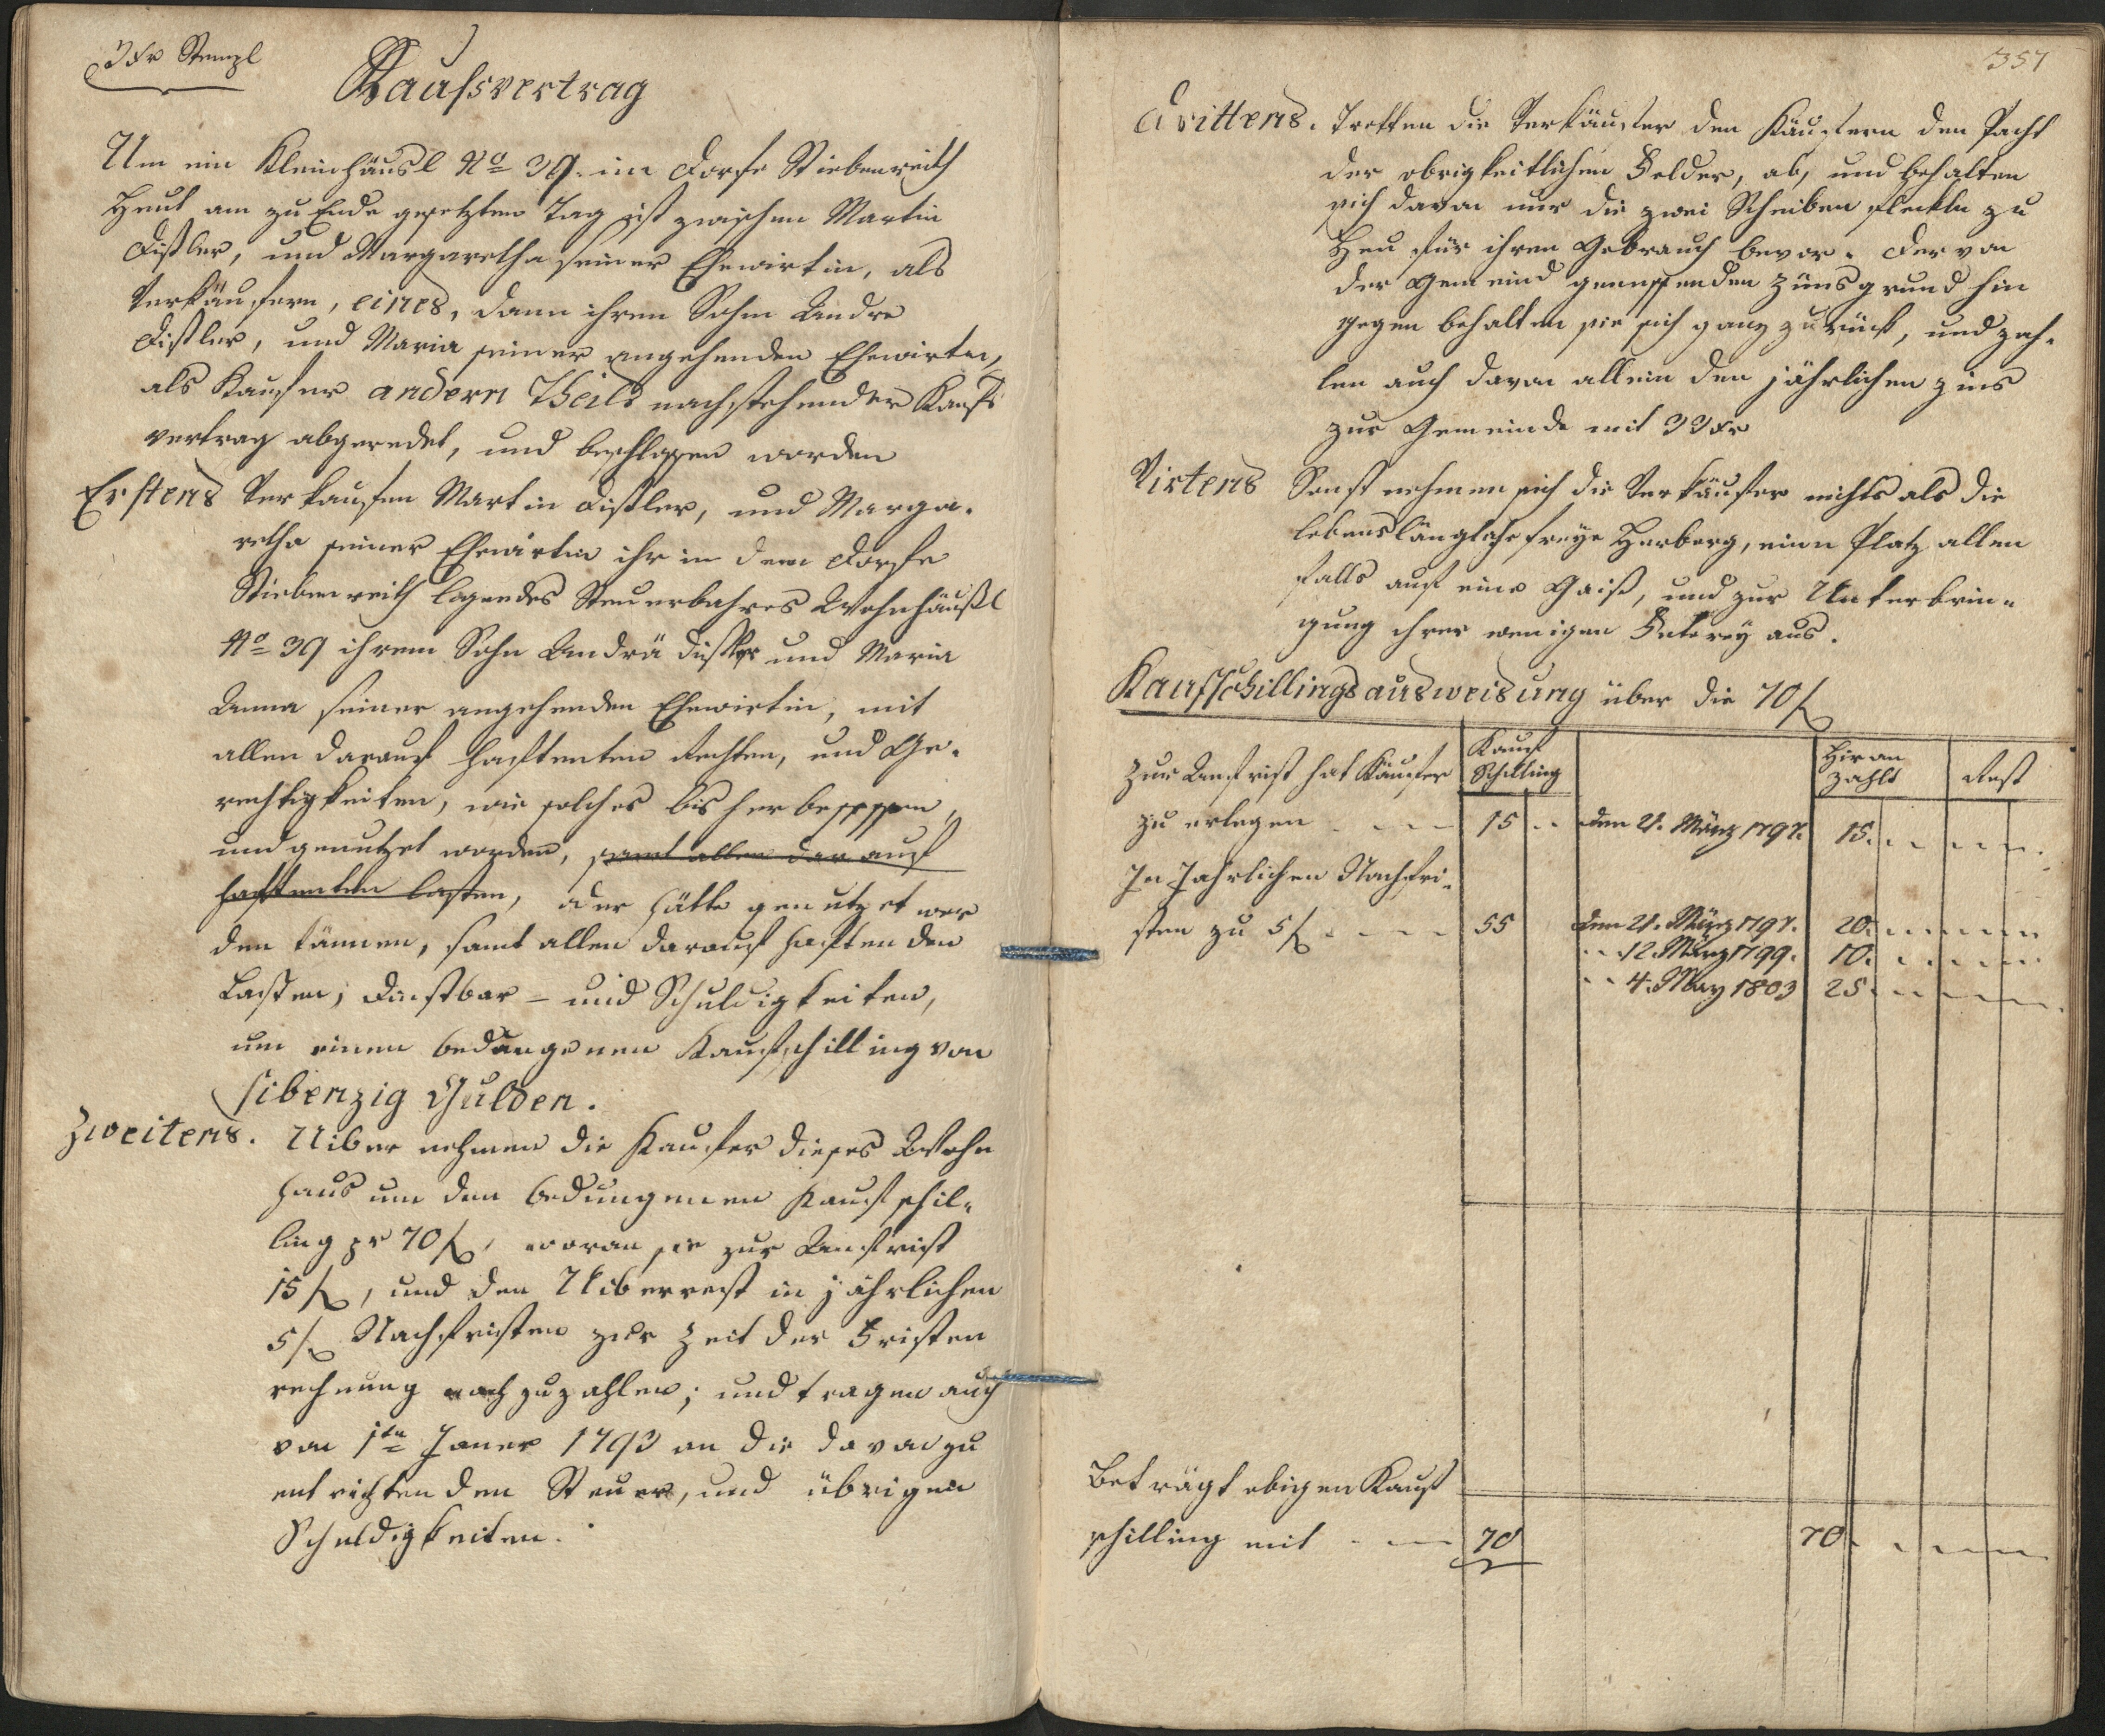 3 Xr Stempl
Kaufsvertrag
Um ein Kleinhäusl No 39. im Dorfe Stiebenreith
Heut am zu Ende gesetzten Tag ist zwischen Martin
Distler, und Margaretha seiner Ehewirtin, als
Verkäufern, eines, dann ihren Sohn Andre
Distler, und Maria seiner angehenden Ehewirtin,
als Kaufer andern Theils nachstehender Kaufs
vertrag abgeredet, und beschlossen worden
Erstens Verkaufen Martin Distler, und Marga-
retha seiner Ehewirtin ihr in dem Dorfe
Stiebenreith liegendes Steuerbahres Wohnhäußl
No 39 ihrem Sohn Andrä Distler und Maria
Anna seiner angehenden Ehewirtin, mit
allen darauf haftenten Rechten, und Ge-
rechtigkeiten, wie solches bisher besessen,
und genutzet worden, samt allen darauf
haftenten lasten, oder hätte genutzet wer
den können, samt allen darauf haftenden
Lasten, Dinstbar - und Schuldigkeiten,
um einen bedungenen Kaufschilling von
sibenzig Gulden.
Zweitens. Uibernehmen die Kaufer dieses Wohn
haus um den bedungenen Kaufschil-
ling pr 70 f, woran sie zur Anfrist
15 f, und den Uiberrest in jährlichen
5 f Nachfristen zur Zeit der Fristen
rechnung nachzuzahlen; und tragen auch
von 1ten Jäner 1793 an die davon zu
entrichtenden Steuer, und übrigen
Schuldigkeiten.
357
Drittens. Tretten die Verkäufer den Käufern den Pacht
der obrigkeitlichen Felder, ab, und behalten
sich davon nur die zwei Scheiben fleckln zu
Heu für ihren Gebrauch bevor. Der von
der Gemeind genussenden Zünsgrund hin
gegen behalten sie sich ganz zurück, und zah-
len auch davon allein den jährlichen Zins
zur Gemeinde mit 33 Xr
Virtens Sonst nehmen sich die Verkäufer nichts als die
lebenslängliche freye Herberg, einen Platz allen
falls auf eine Gaiß, und zur Unterbrin-
gung ihrer wenigen Futerey aus.
Kaufschillingsausweisung über die 70 f
Kauf Schilling Hieran zahlt Rest
Zur Anfrist hat Käufer
zu erlegen 15 den 21. März 1797. 15.
In Jahrlichen Nachfri-
sten zu 5 f 55 den 21. März 1797. 20.
12. März 1799. 10.
4. May 1803 25
Beträgt obigen Kauf
schilling mit 70 70